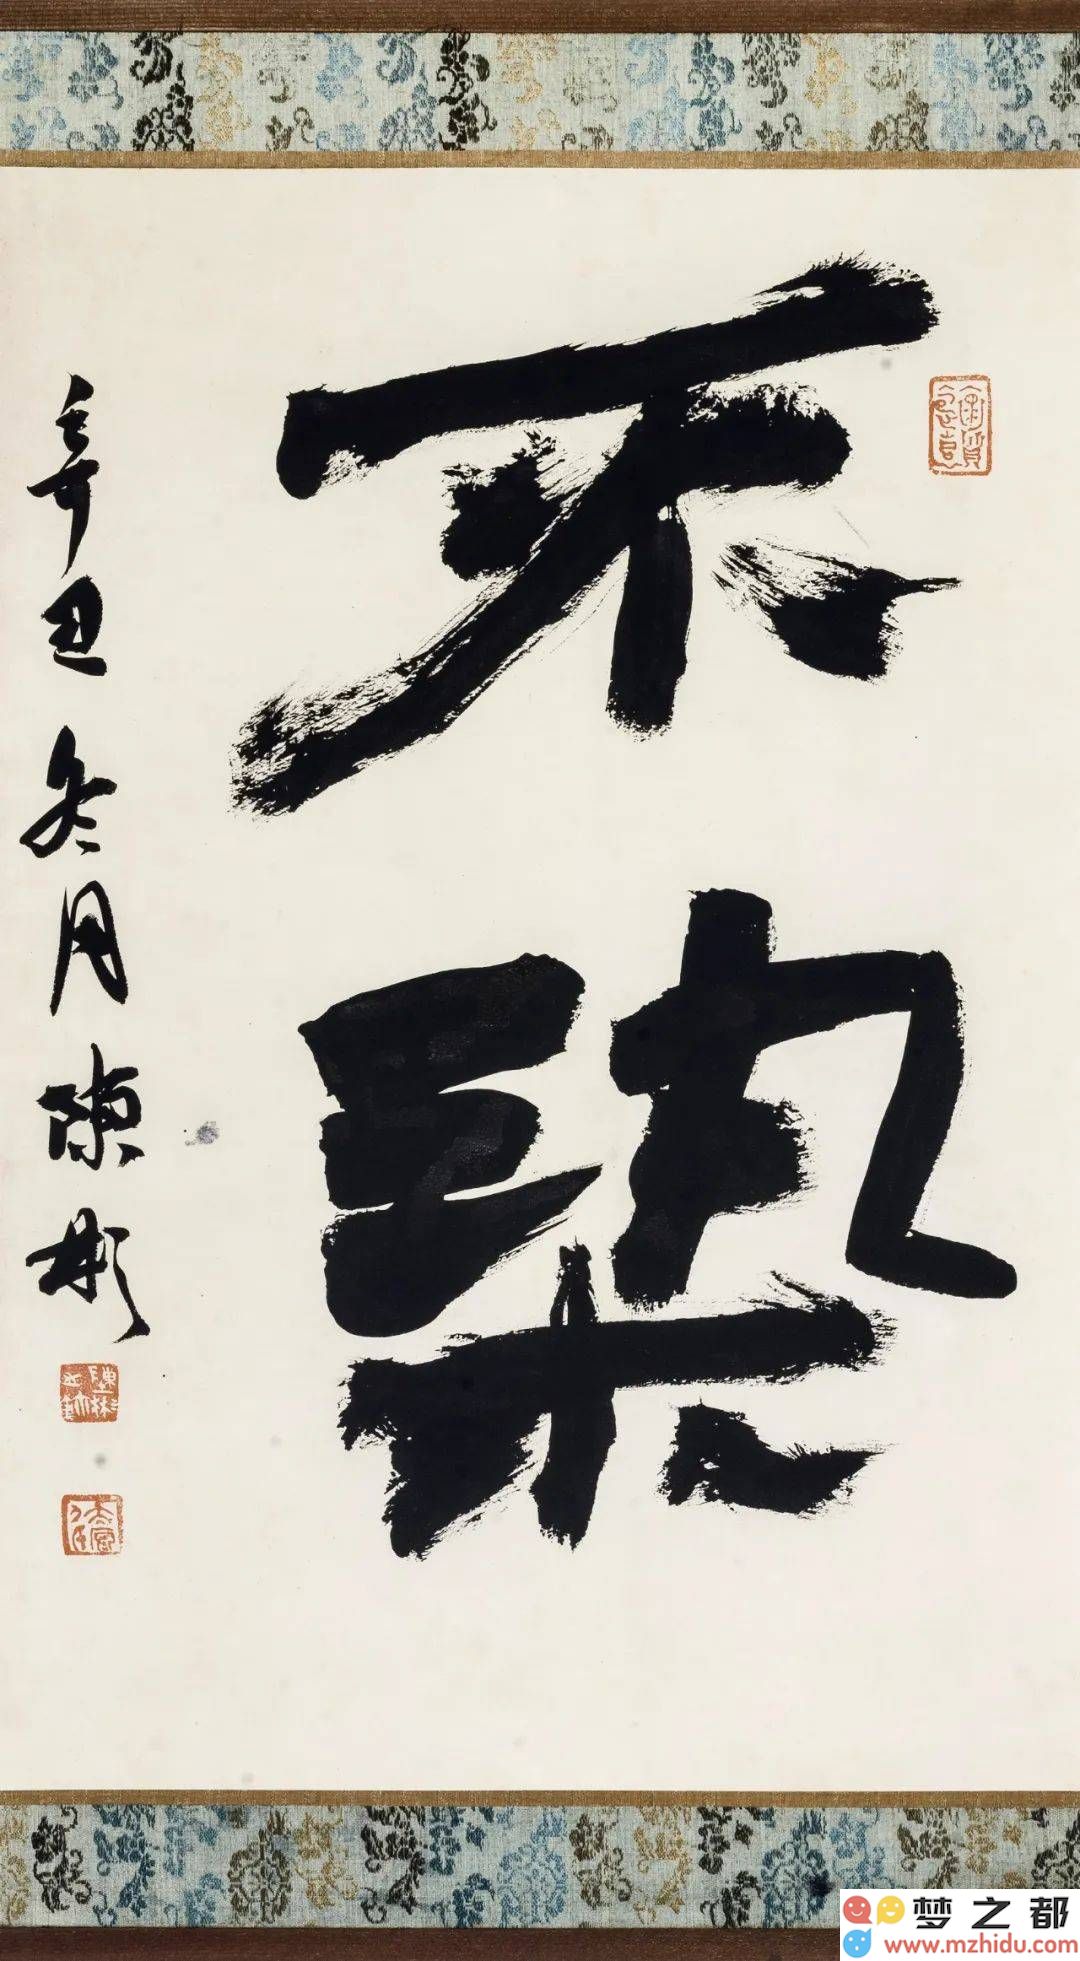 不染
辛丑冬月陈彬
梦之都
www.mzhidu.com